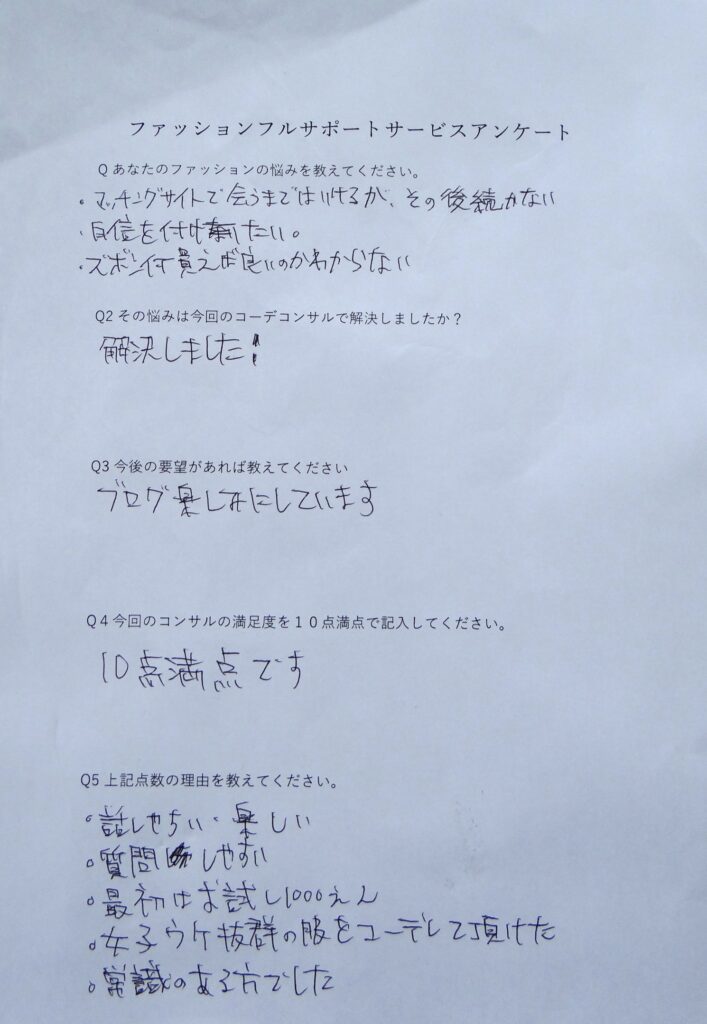 ファッションフルサポートサービスアンケート
Q あなたのファッションの悩みを教えてください。
。マッチングサイトで会うまではいけるが、その後続かない
・自信を付けたい。
・ズボン何買えば良いのかわからない
Q2 その悩みは今回のコーデコンサルで解決しましたか？
解決しました!
Q3 今後の要望があれば教えてください
ブログ楽しみにしています
Q4 今回のコンサルの満足度を１０点満点で記入してください。
10点満点です
Q5 上記点数の理由を教えてください。
。話しやすい・楽しい
。質問しやすい
。最初はお試し1000えん
。女子ウケ抜群の服をコーデして頂けた
。常識のある方でした